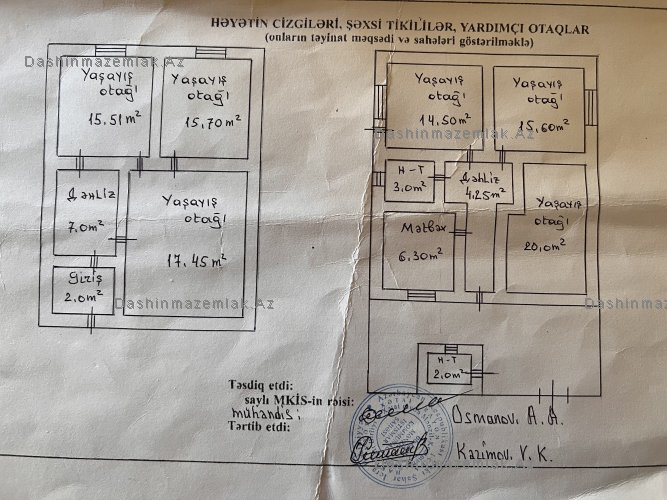 HƏYƏTİN CİZGİLƏRİ, ŞƏXSİ TİKİLİLƏR, YARDIMÇI OTAQLAR
(onların təyinat məqsədi və sahələri göstərilməklə)
DashinmazEmlak.Az
Yaşayış
otağı
15.51 m²
Yaşayış
otağı
15,70 m²
Dəhliz
7.0 m²
Yaşayış
otağı
17.45 m²
Giriş
2.0 m²
Dashinmazemlak.Az
Yaşayış
otağı
14.50 m²
Yaşayış
otağı
15,60 m²
Dashinmazemlak.Az
H-T
3,0 m²
Dəhliz
4.25 m²
Mətbəx
6.30 m²
Yaşayış
otağı
20,0 m²
Dashinmazemlak.Az
H-T
2.0 m²
Təsdiq etdi:
saylı MKİS-in rəisi:
mühəndis:
Tərtib etdi:
Osmanov A. A.
Kazımov V. K.